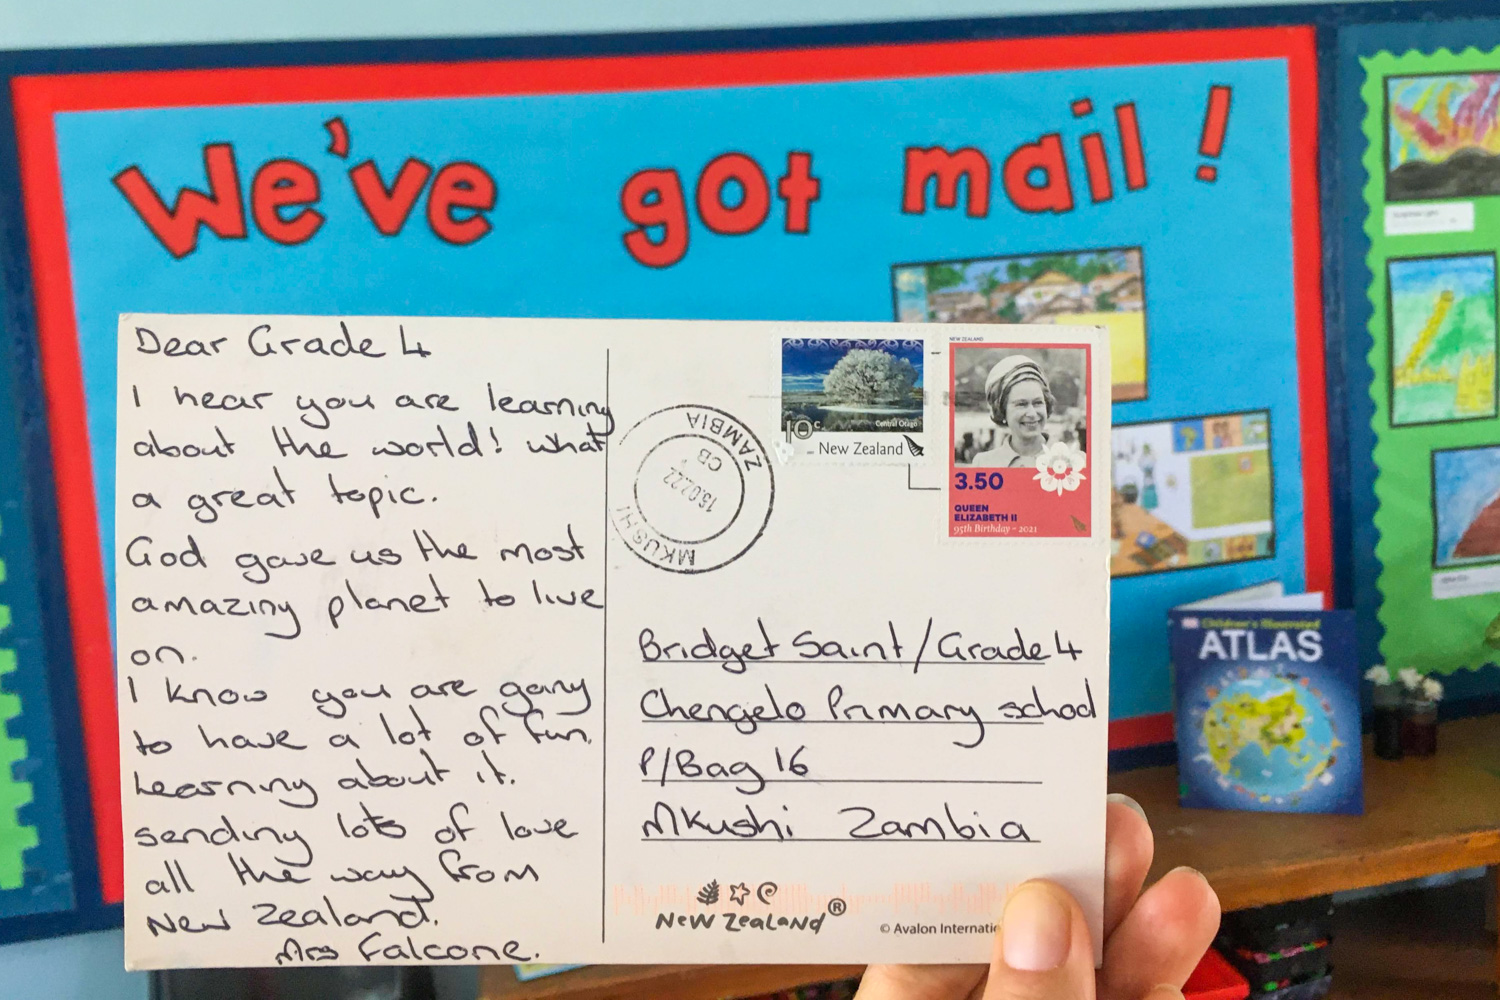 We've got mail!
Dear Grade 4
I hear you are learning
about the world! what
a great topic.
God gave us the most
amazing planet to live
on.
I know you are going
to have a lot of fun
learning about it.
sending lots of love
all the way from
New Zealand.
Mrs Falcone.
MKUSHI
13.02.22
CB
ZAMBIA
10c
Central Otago
New Zealand
NEW ZEALAND
3.50
QUEEN
ELIZABETH II
95th Birthday - 2021
Bridget Saint/Grade 4
Chengelo Primary school
P/Bag 16
Mkushi Zambia
New Zealand®
© Avalon Internatio
Children's Illustrated
ATLAS